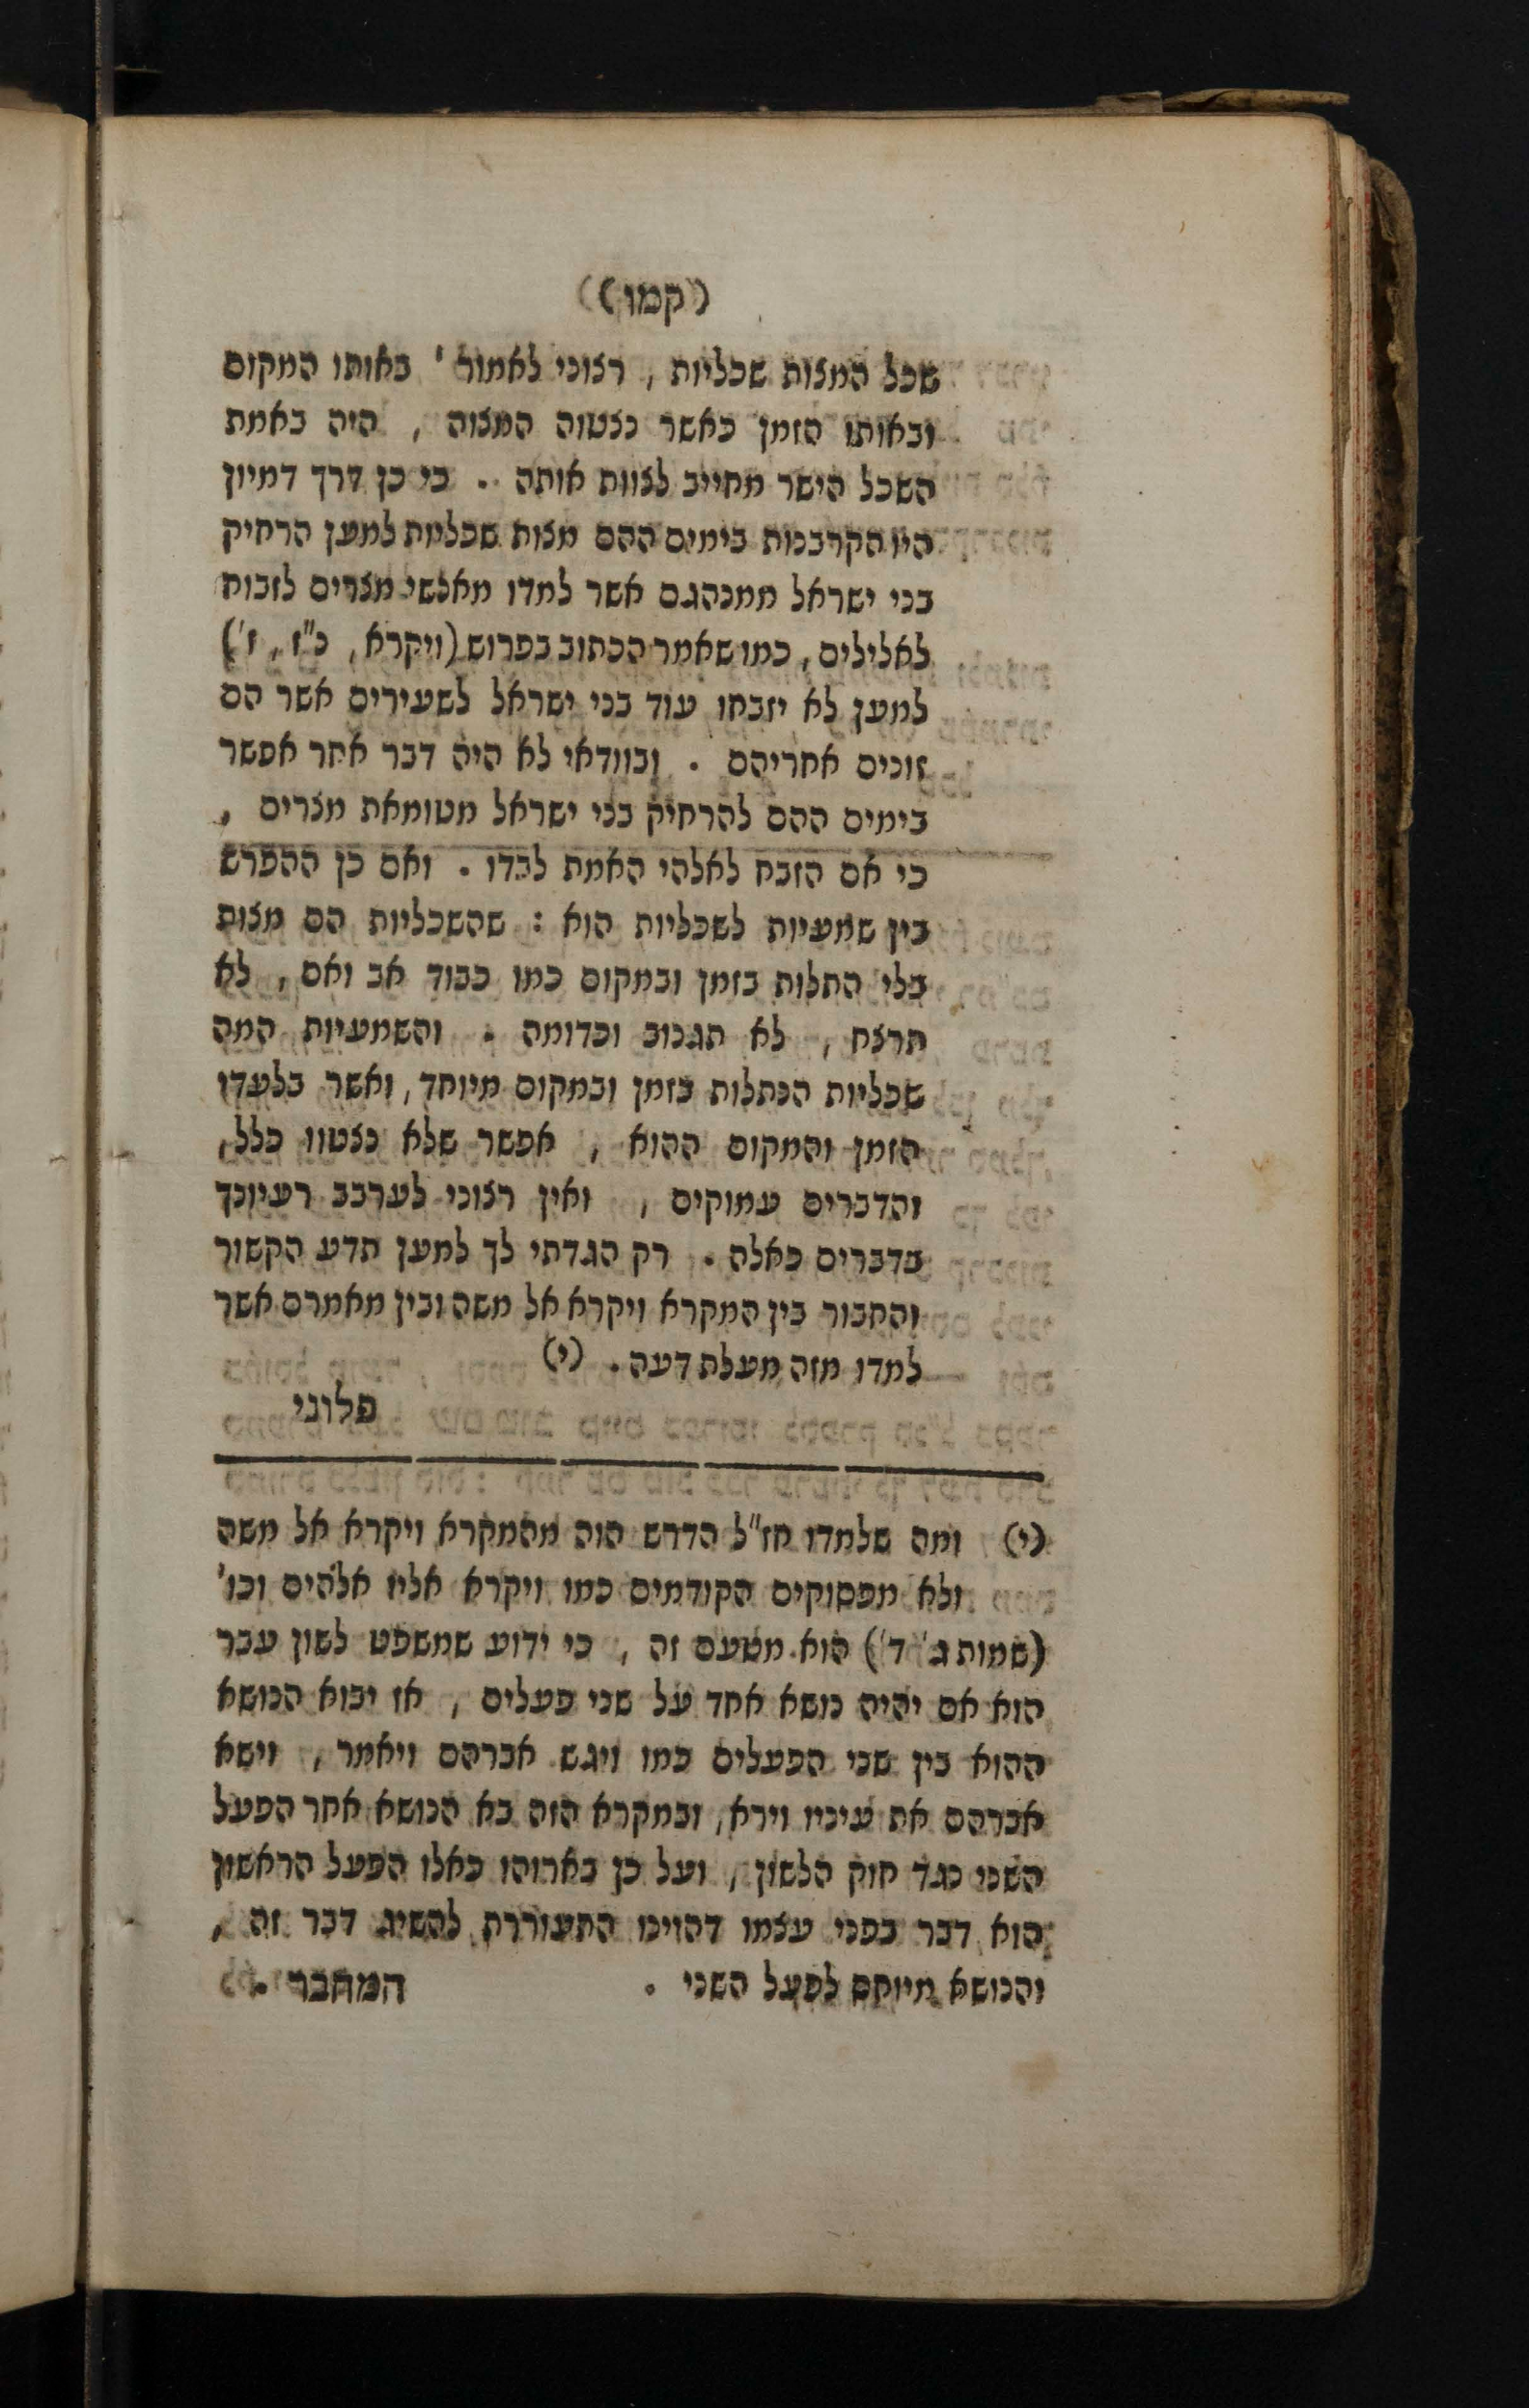 (קמו)
שכל המצות שכליות , רצוני לאמור ' באותו המקום
ובאותו הזמן כאשר נצטוה המצוה , היה באמת
השכל הישר מחייב לצוות אותה . כי כן דרך דמיון
היו הקרבנות בימים ההם מצות שכליות למען הרחיק
בני ישראל ממנהגם אשר למדו מאנשי מצרים לזבוח
לאלילים , כמו שאמר הכתוב בפרוש (ויקרא , כ"ז , ז')
למען לא יזבחו עוד בני ישראל לשעירים אשר הם
זונים אחריהם . ובוודאי לא היה דבר אחר אפשר
בימים ההם להרחיק בני ישראל מטומאת מצרים ,
כי אם הזבח לאלהי האמת לבדו . ואם כן ההפרש
בין שמעיות לשכליות הוא : שהשכליות הם מצות
בלי התלות בזמן ובמקום כמו כבוד אב ואם , לא
תרצח , לא תגנוב וכדומה . והשמעיות המה
שכליות הנתלות בזמן ובמקום מיוחד , ואשר בלעדו
הזמן והמקום ההוא , אפשר שלא נצטוו כלל ,
והדברים עמוקים , ואין רצוני לערבב רעיונך
בדברים כאלה . רק הגדתי לך למען תדע הקשור
והחבור בין המקרא ויקרא אל משה ובין מאמרם אשר
למדו מזה מעלת דעה . (י)
פלוני
(י) ומה שלמדו חז"ל הדרש הזה מהמקרא ויקרא אל משה
ולא מפסוקים הקודמים כמו ויקרא אליו אלהים וכו'
(שמות ג' ד') הוא מטעם זה , כי ידוע שמשפט לשון עבר
הוא אם יהיה נושא אחד על שני פעלים , אז יבוא הנושא
ההוא בין שני הפעלים כמו ויגש אברהם ויאמר , וישא
אברהם את עיניו וירא , ובמקרא הזה בא הנושא אחר הפעל
השני נגד חוק הלשון , ועל כן בארוהו כאלו הפעל הראשון
הוא דבר בפני עצמו דהוינו התעוררת להשיג דבר זה ,
והנושא מיוחס לפעל השני . המחבר .